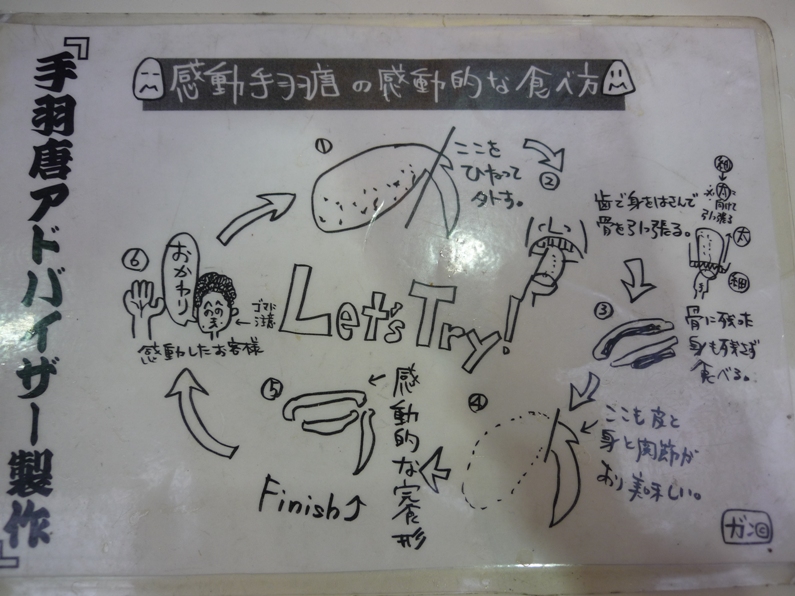 『手羽唐アドバイザー製作』
感動手羽唐の感動的な食べ方
①
ここを
ひねって
外す。
②
歯で身をはさんで
骨を引っ張る。
細
↓
※太に
向けて
引っ張る
太
細
③
骨に残った
身も残さず
食べる。
④
ここも皮と
身と関節が
あり美味しい。
⑤
感動的な完食形
Finish↑
⑥
おかわり
感動したお客様
Let's Try!
ガン©